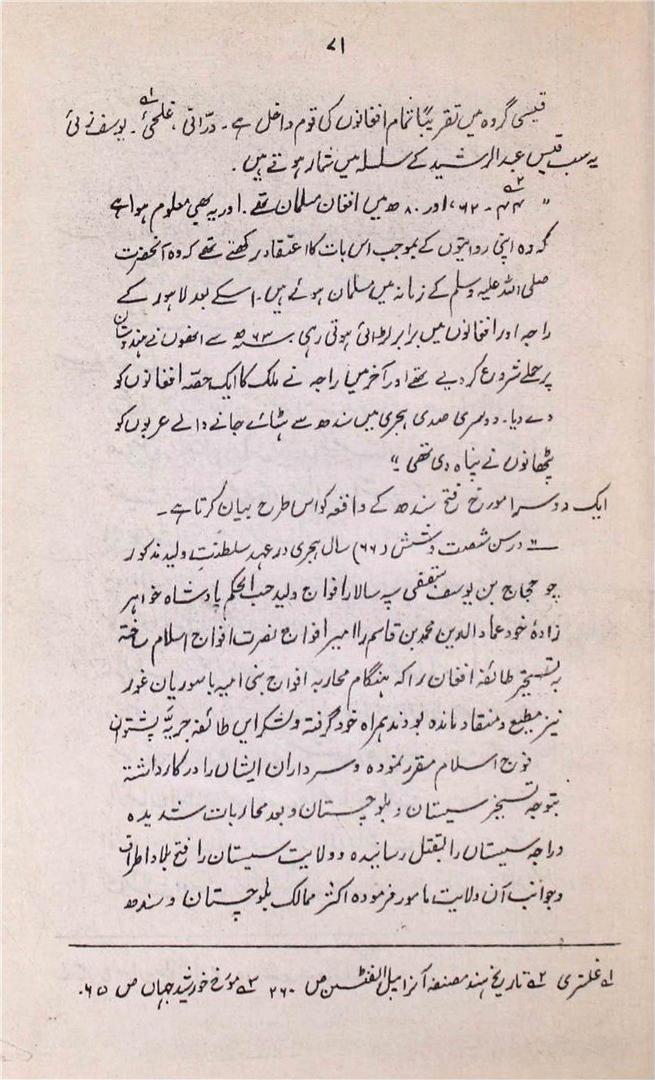 ۷۱
قیسی گروہ میں تقریباً تمام افغانوں کی قوم داخل ہے۔ درّانی، غلجئی ۱؎۔ یوسف زئی
یہ سب قیس عبدالرشید کے سلسلہ میں شمار ہوتے ہیں۔
"۲؎ ۴۴ - ۶۲، اور ۸۰ھ میں افغان مسلمان تھے۔ اور یہ بھی معلوم ہوا ہے
کہ وہ اپنی روایتوں کے بموجب اس بات کا اعتقاد رکھتے تھے کہ وہ آنحضرت
صلی اللہ علیہ وسلم کے زمانہ میں مسلمان ہوئے ہیں۔ اسکے بعد لاہور کے
راجہ اور افغانوں میں برابر لڑائی ہوتی رہی۔ ۶۳ھ سے انھوں نے ہندوستان
پر حملے شروع کر دیے تھے اور آخر میں راجہ نے ملک کا ایک حصّہ افغانوں کو
دے دیا۔ دوسری صدی ہجری میں سندھ سے ہٹائے جانے والے عربوں کو
پٹھانوں نے پناہ دی تھی۔"
ایک دوسرا مورخ فتح سندھ کے واقعہ کو اس طرح بیان کرتا ہے۔
"درسن شصت و شش (۶۶) سال ہجری در عہد سلطنت ولید مذکور
چو حجاج بن یوسف ثقفی سپہ سالار افواج ولید حب الحکم پادشاہ خواہر
زادۂ خود عماد الدین محمد بن قاسم را امیر افواج نصرت افواج اسلام ساختہ
بہ تسخیر طائفہ افغان را کہ ہنگام محاربہ افواج بنی امیہ با سوریان غور
نیز مطیع و منقاد ماندہ بودند ہمراہ خود گرفتہ و لشکر ایں طائفہ جریّہ پشتون
فوج اسلام مقرر نمودہ و سرداران ایشاں را درکار داشتہ
بتوجہ تسخیر سیستان و بلوچستان و بعد محاربات شدیدہ
دراجہ سیستاں را بقتل رسانیدہ و ولایت سیستان را فتح بلاد اطراف
و جوانب آن ولایت مامور فرمودہ اکثر ممالک بلوچستان و سندھ
۱؎ غلزی ۲؎ تاریخ ہند مصنفہ آنرابیل الفنسٹن ص ۲۶۰ ۳؎ مورخ خورشید جہاں ص ۶۵۔